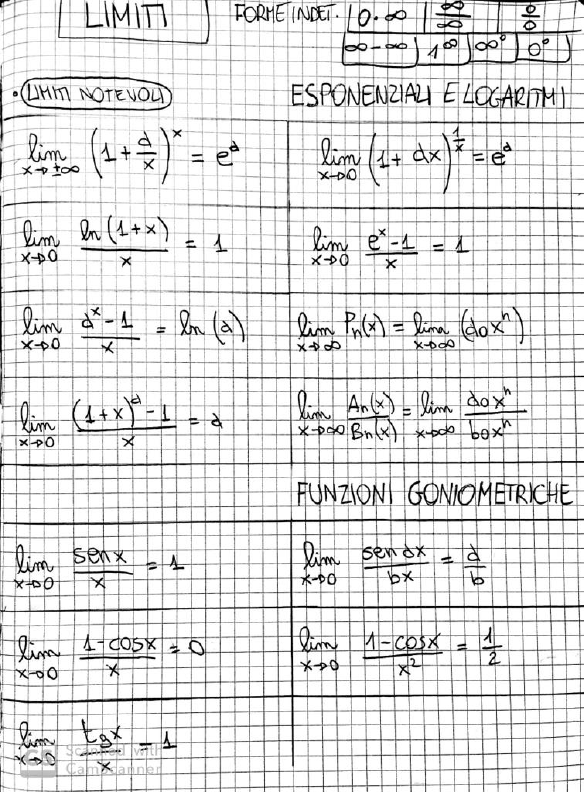 LIMITI FORME INDET. 0·∞ ∞/∞ 0/0
∞-∞ 1^∞ ∞^0 0^0
• LIMITI NOTEVOLI ESPONENZIALI E LOGARITMI
lim x→±∞ (1 + a/x)^x = e^a lim x→0 (1 + ax)^(1/x) = e^a
lim x→0 ln(1+x)/x = 1 lim x→0 (e^x - 1)/x = 1
lim x→0 (a^x - 1)/x = ln(a) lim x→∞ Pn(x) = lim x→∞ (a0x^n)
lim x→0 ((1+x)^a - 1)/x = a lim x→∞ An(x)/Bn(x) = lim x→∞ a0x^n/b0x^n
FUNZIONI GONIOMETRICHE
lim x→0 senx/x = 1 lim x→0 sen ax/bx = a/b
lim x→0 (1-cosx)/x = 0 lim x→0 (1-cosx)/x^2 = 1/2
lim x→0 tgx/x = 1
CS Scanned with
CamScanner